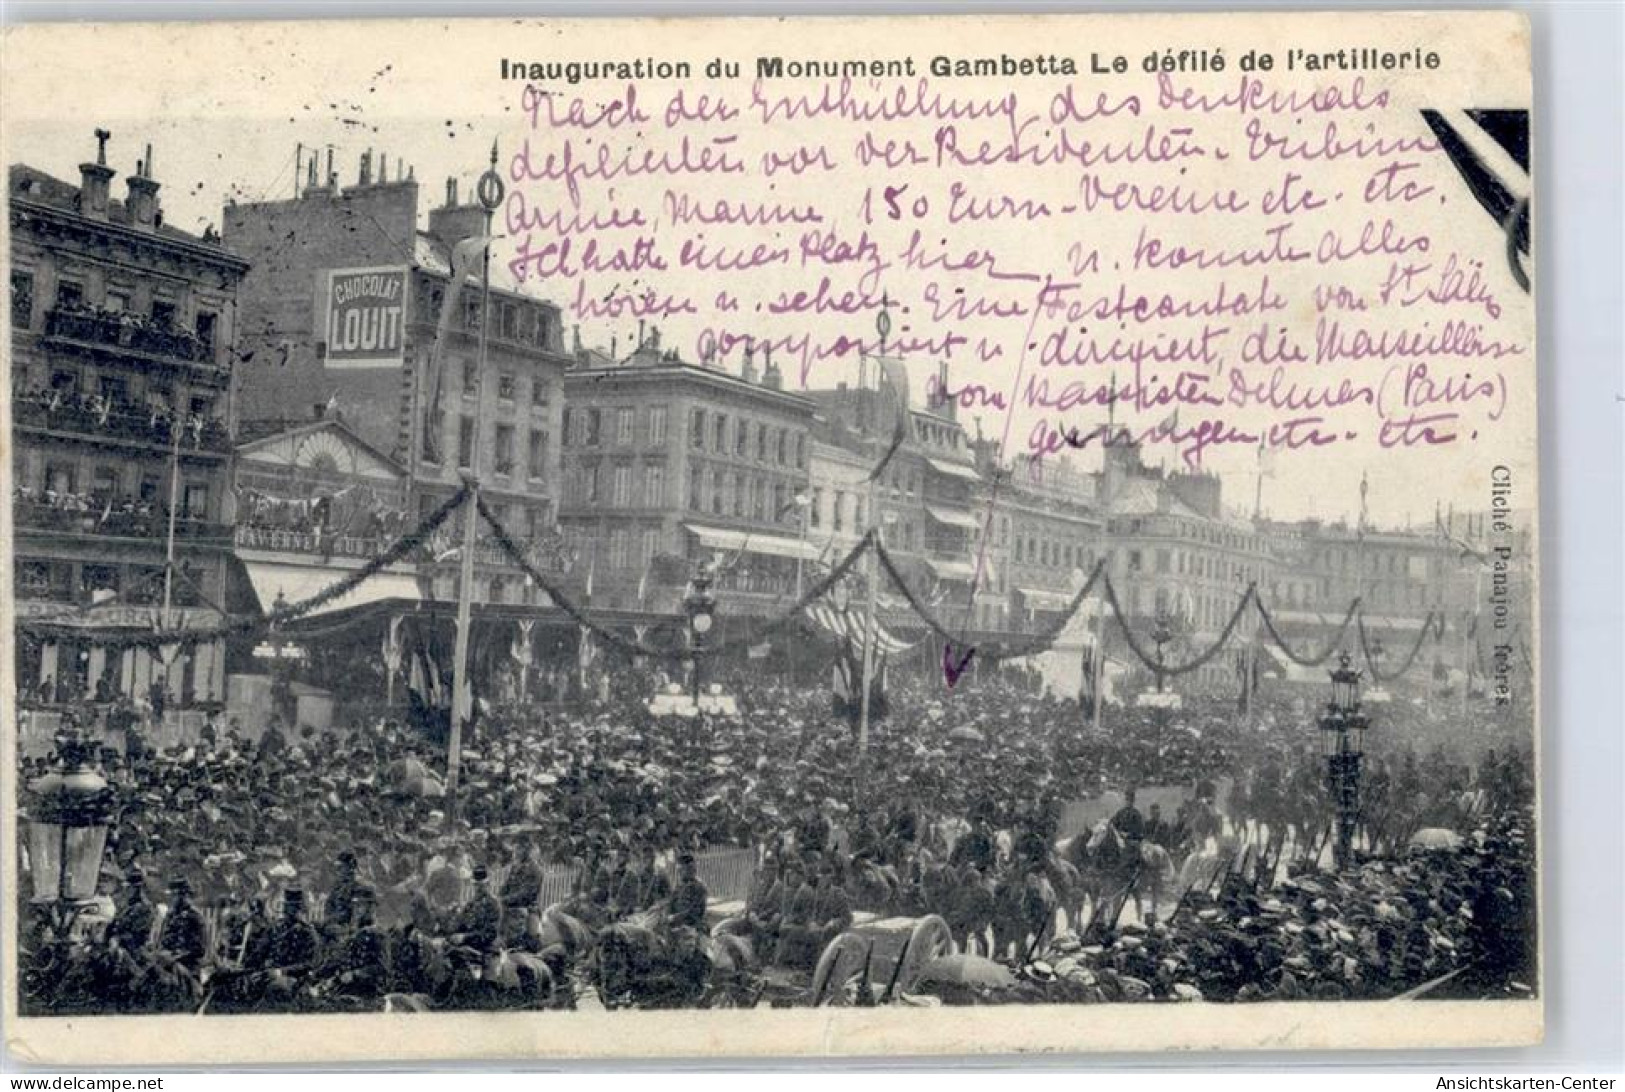 Inauguration du Monument Gambetta Le défilé de l'artillerie
Nach der Enthüllung des Denkmals
defilierten vor der Präsidenten-Tribüne
Armée, Marine, 150 Turn-Vereine etc. etc.
Ich hatte einen Platz hier, u. konnte alles
hören u. sehen. Eine Festcantate von St. Säens
componiert u. dirigiert, die Marseillaise
vom Bassisten Delmas (Paris)
gesungen, etc. etc.
CHOCOLAT
LOUIT
TAVERNE
Cliché Panajou frères
www.oldthing.de
Ansichtskarten-Center